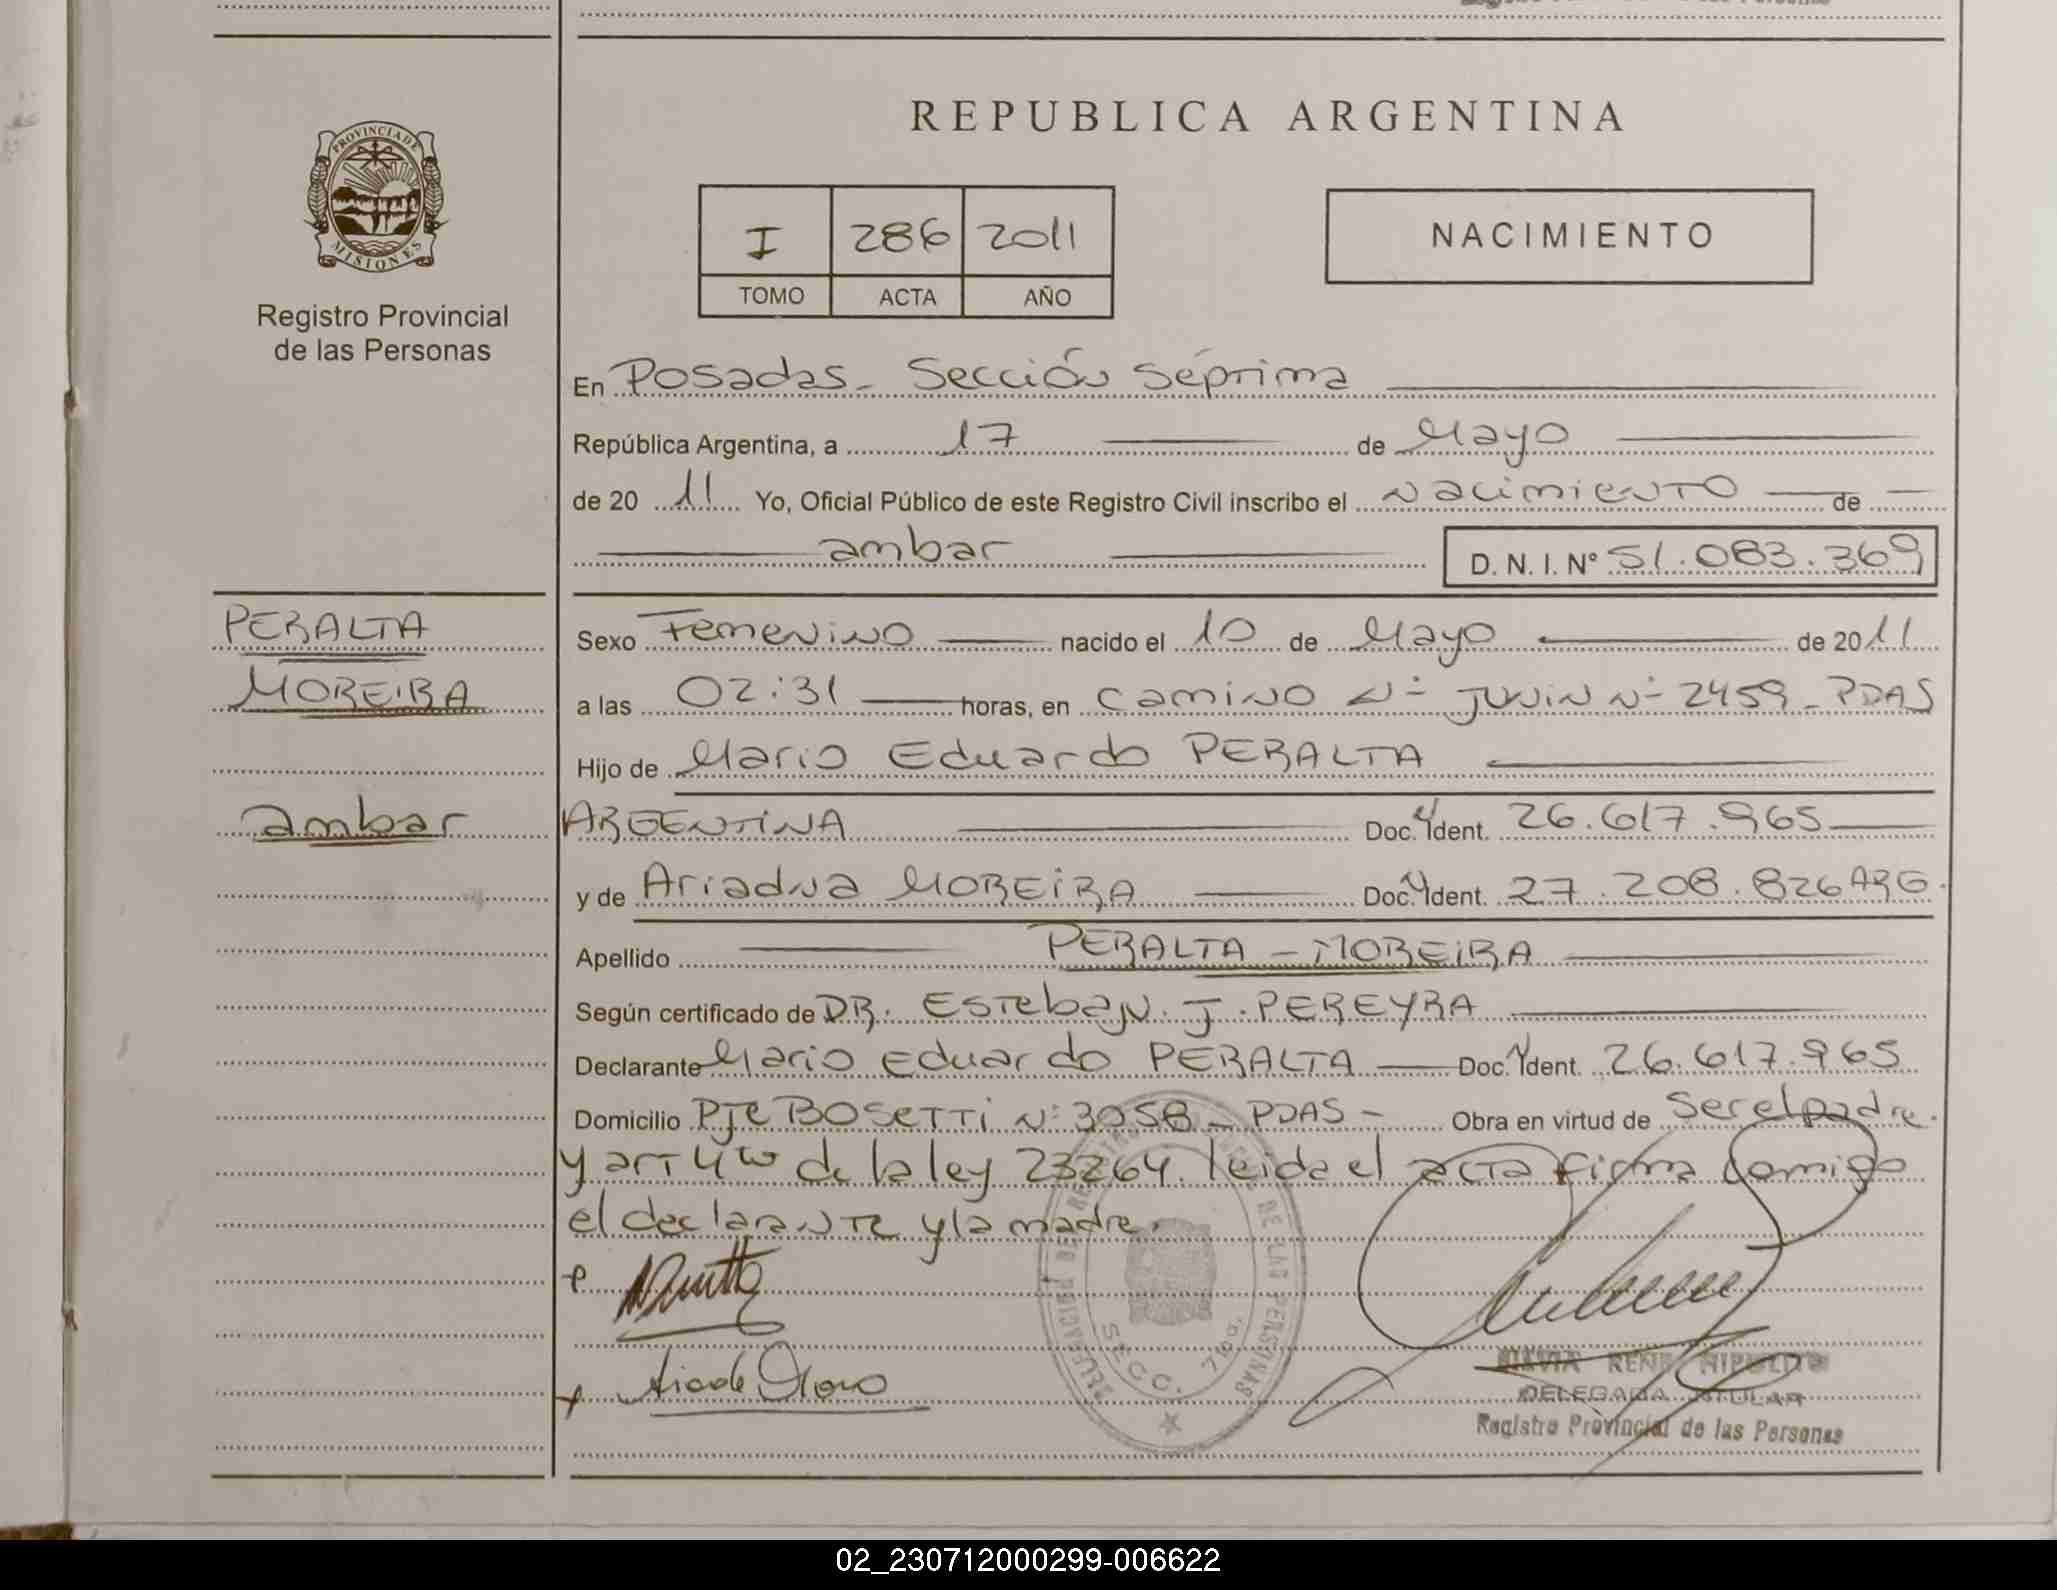 REPUBLICA ARGENTINA
PROVINCIA DE
MISIONES
Registro Provincial
de las Personas
I 286 2011
TOMO ACTA AÑO
NACIMIENTO
En Posadas - Sección Séptima
República Argentina, a 17 de Mayo
de 20 11 Yo, Oficial Público de este Registro Civil inscribo el Nacimiento de
ambar D. N. I. Nº 51.083.369
PERALTA
MOREIRA
ambar
Sexo Femenino nacido el 10 de Mayo de 2011
a las 02:31 horas, en camino Nº JUNIN Nº 2459 - PDAS
Hijo de Mario Eduardo PERALTA
ARGENTINA Doc. Ident. 26.617.965
y de Ariadna MOREIRA Doc. Ident. 27.208.826 ARG.
Apellido PERALTA - MOREIRA
Según certificado de DR. Esteban J. PEREYRA
Declarante Mario Eduardo PERALTA Doc. Ident. 26.617.965
Domicilio Pje BOSETTI Nº 3058 - PDAS - Obra en virtud de ser el padre.
y art 4to de la ley 23264. leida el acta firma comigo
el declarante y la madre.
DELEGACION DEL REGISTRO DE LAS PERSONAS
SECC. 7ma.
RENE HIPOLITO
DELEGADA TITULAR
Registro Provincial de las Personas
02_230712000299-006622